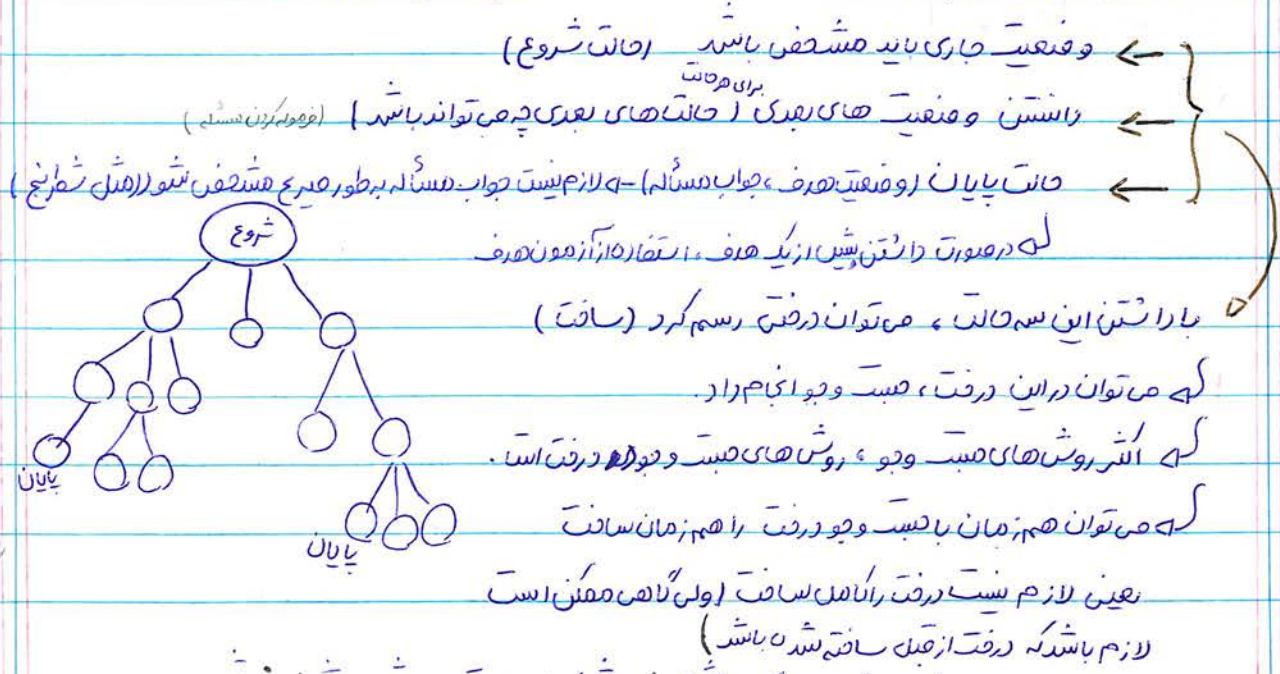 وضعیت جاری باید مشخص باشد (حالت شروع)
برای هر حالت
داشتن وضعیت های بعدی (حالت های بعدی چه می تواند باشد) (فرموله کردن مسئله)
حالت پایان (وضعیت هدف، جواب مسأله) → لازم نیست جواب مسأله به طور صریح مشخص شود (مثل شطرنج)
شروع
در صورت داشتن بیش از یک هدف، استفاده از آزمون هدف
با داشتن این سه حالت، می توان درختی رسم کرد (ساخت)
می توان در این درخت، جست و جو انجام داد.
اکثر روش های جست و جو، روش های جست و جو در درخت است.
پایان
می توان هم زمان با جست و جو درخت را هم زمان ساخت
پایان
یعنی لازم نیست درخت را کامل ساخت (ولی گاهی ممکن است
لازم باشد که درخت از قبل ساخته شده باشد)